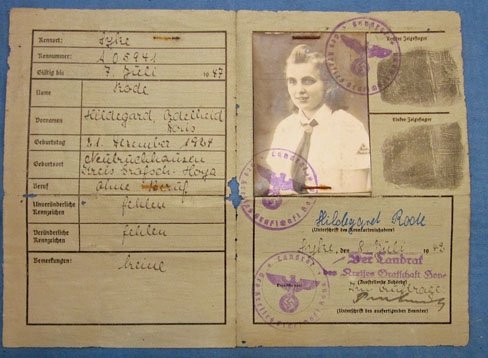 Kennort: Syke
Kennummer: A 05941
Gültig bis 7. Juli 1947
Name Rode
Vornamen Hildegard, Adelheid
Doris
Geburtstag 31. Dezember 1924
Geburtsort Neubruchhausen
Kreis Grafsch. Hoya
Beruf ohne Beruf
Unveränderliche Kennzeichen fehlen
Veränderliche Kennzeichen fehlen
Bemerkungen: keine
Rechter Zeigefinger
Linker Zeigefinger
Hildegard Rode
(Unterschrift des Kennkarteninhabers)
Syke, den 8. Juli 1942
Der Landrat
des Kreises Grafschaft Hoya
(Ausstellende Behörde)
Im Auftrage:
(Unterschrift des ausfertigenden Beamten)